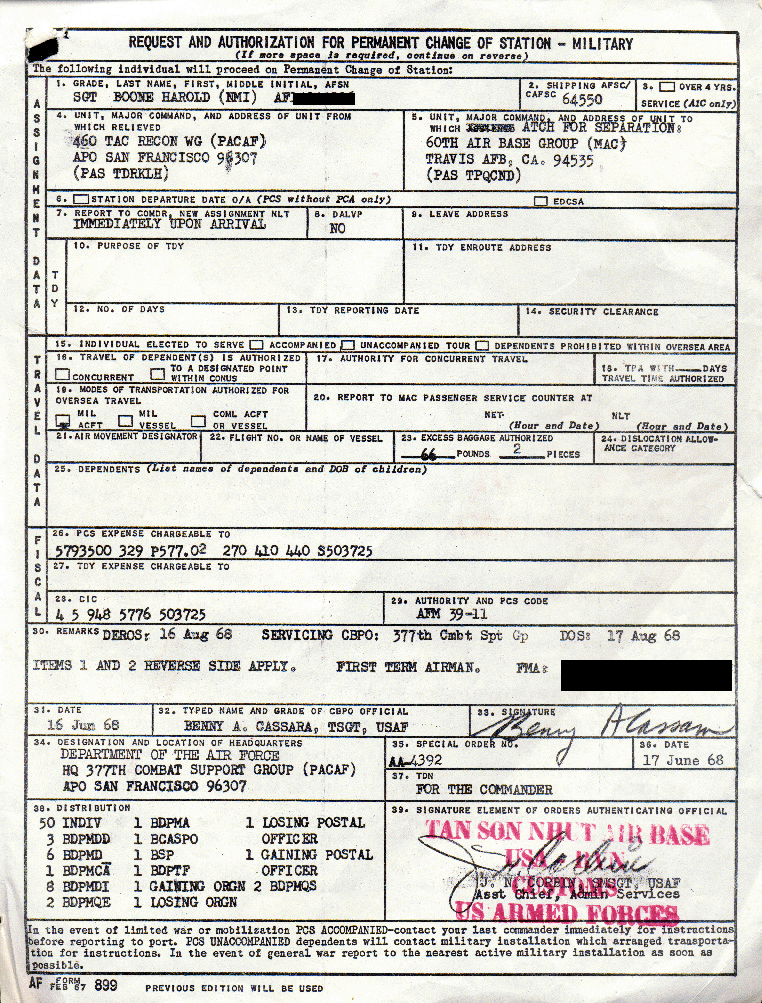 REQUEST AND AUTHORIZATION FOR PERMANENT CHANGE OF STATION - MILITARY
(If more space is required, continue on reverse)
The following individual will proceed on Permanent Change of Station:
ASSIGNMENT DATA
1. GRADE, LAST NAME, FIRST, MIDDLE INITIAL, AFSN
SGT BOONE HAROLD (NMI) AF
2. SHIPPING AFSC/
CAFSC 64550
3. OVER 4 YRS.
SERVICE (A1C only)
4. UNIT, MAJOR COMMAND, AND ADDRESS OF UNIT FROM
WHICH RELIEVED
460 TAC RECON WG (PACAF)
APO SAN FRANCISCO 96307
(PAS TDRKLH)
5. UNIT, MAJOR COMMAND, AND ADDRESS OF UNIT TO
WHICH ATCH FOR SEPARATION:
60TH AIR BASE GROUP (MAC)
TRAVIS AFB, CA. 94535
(PAS TPQCND)
6. STATION DEPARTURE DATE O/A (PCS without PCA only)
EDCSA
7. REPORT TO COMDR, NEW ASSIGNMENT NLT
IMMEDIATELY UPON ARRIVAL
8. DALVP
NO
9. LEAVE ADDRESS
TDY
10. PURPOSE OF TDY
11. TDY ENROUTE ADDRESS
12. NO. OF DAYS
13. TDY REPORTING DATE
14. SECURITY CLEARANCE
TRAVEL DATA
15. INDIVIDUAL ELECTED TO SERVE ACCOMPANIED UNACCOMPANIED TOUR DEPENDENTS PROHIBITED WITHIN OVERSEA AREA
16. TRAVEL OF DEPENDENT(S) IS AUTHORIZED
CONCURRENT TO A DESIGNATED POINT
WITHIN CONUS
17. AUTHORITY FOR CONCURRENT TRAVEL
18. TPA WITH DAYS
TRAVEL TIME AUTHORIZED
19. MODES OF TRANSPORTATION AUTHORIZED FOR
OVERSEA TRAVEL
MIL ACFT MIL VESSEL COML ACFT OR VESSEL
20. REPORT TO MAC PASSENGER SERVICE COUNTER AT
NET NLT
(Hour and Date) (Hour and Date)
21. AIR MOVEMENT DESIGNATOR
22. FLIGHT NO. OR NAME OF VESSEL
23. EXCESS BAGGAGE AUTHORIZED
66 POUNDS 2 PIECES
24. DISLOCATION ALLOW-
ANCE CATEGORY
25. DEPENDENTS (List names of dependents and DOB of children)
FISCAL
26. PCS EXPENSE CHARGEABLE TO
5793500 329 P577.02 270 410 440 S503725
27. TDY EXPENSE CHARGEABLE TO
28. CIC
4 5 948 5776 503725
29. AUTHORITY AND PCS CODE
AFM 39-11
30. REMARKS DEROS: 16 Aug 68 SERVICING CBPO: 377th Cmbt Spt Gp DOS: 17 Aug 68
ITEMS 1 AND 2 REVERSE SIDE APPLY. FIRST TERM AIRMAN. FMA:
31. DATE
16 Jun 68
32. TYPED NAME AND GRADE OF CBPO OFFICIAL
BENNY A. CASSARA, TSGT, USAF
33. SIGNATURE
Benny A Cassara
34. DESIGNATION AND LOCATION OF HEADQUARTERS
DEPARTMENT OF THE AIR FORCE
HQ 377TH COMBAT SUPPORT GROUP (PACAF)
APO SAN FRANCISCO 96307
35. SPECIAL ORDER NO.
AA-4392
36. DATE
17 June 68
37. TDN
FOR THE COMMANDER
38. DISTRIBUTION
50 INDIV 1 BDPMA 1 LOSING POSTAL
3 BDPMDD 1 BCASPO OFFICER
6 BDPMD 1 BSP 1 GAINING POSTAL
1 BDPMCA 1 BDPTF OFFICER
8 BDPMDI 1 GAINING ORGN 2 BDPMQS
2 BDPMQE 1 LOSING ORGN
39. SIGNATURE ELEMENT OF ORDERS AUTHENTICATING OFFICIAL
TAN SON NHUT AIR BASE
CUSTOMS
US ARMED FORCES
J. N. CORBIN, SMSGT, USAF
Asst Chief, Admin Services
In the event of limited war or mobilization PCS ACCOMPANIED-contact your last commander immediately for instructions
before reporting to port. PCS UNACCOMPANIED dependents will contact military installation which arranged transporta-
tion for instructions. In the event of general war report to the nearest active military installation as soon as
possible.
AF FORM FEB 67 899 PREVIOUS EDITION WILL BE USED